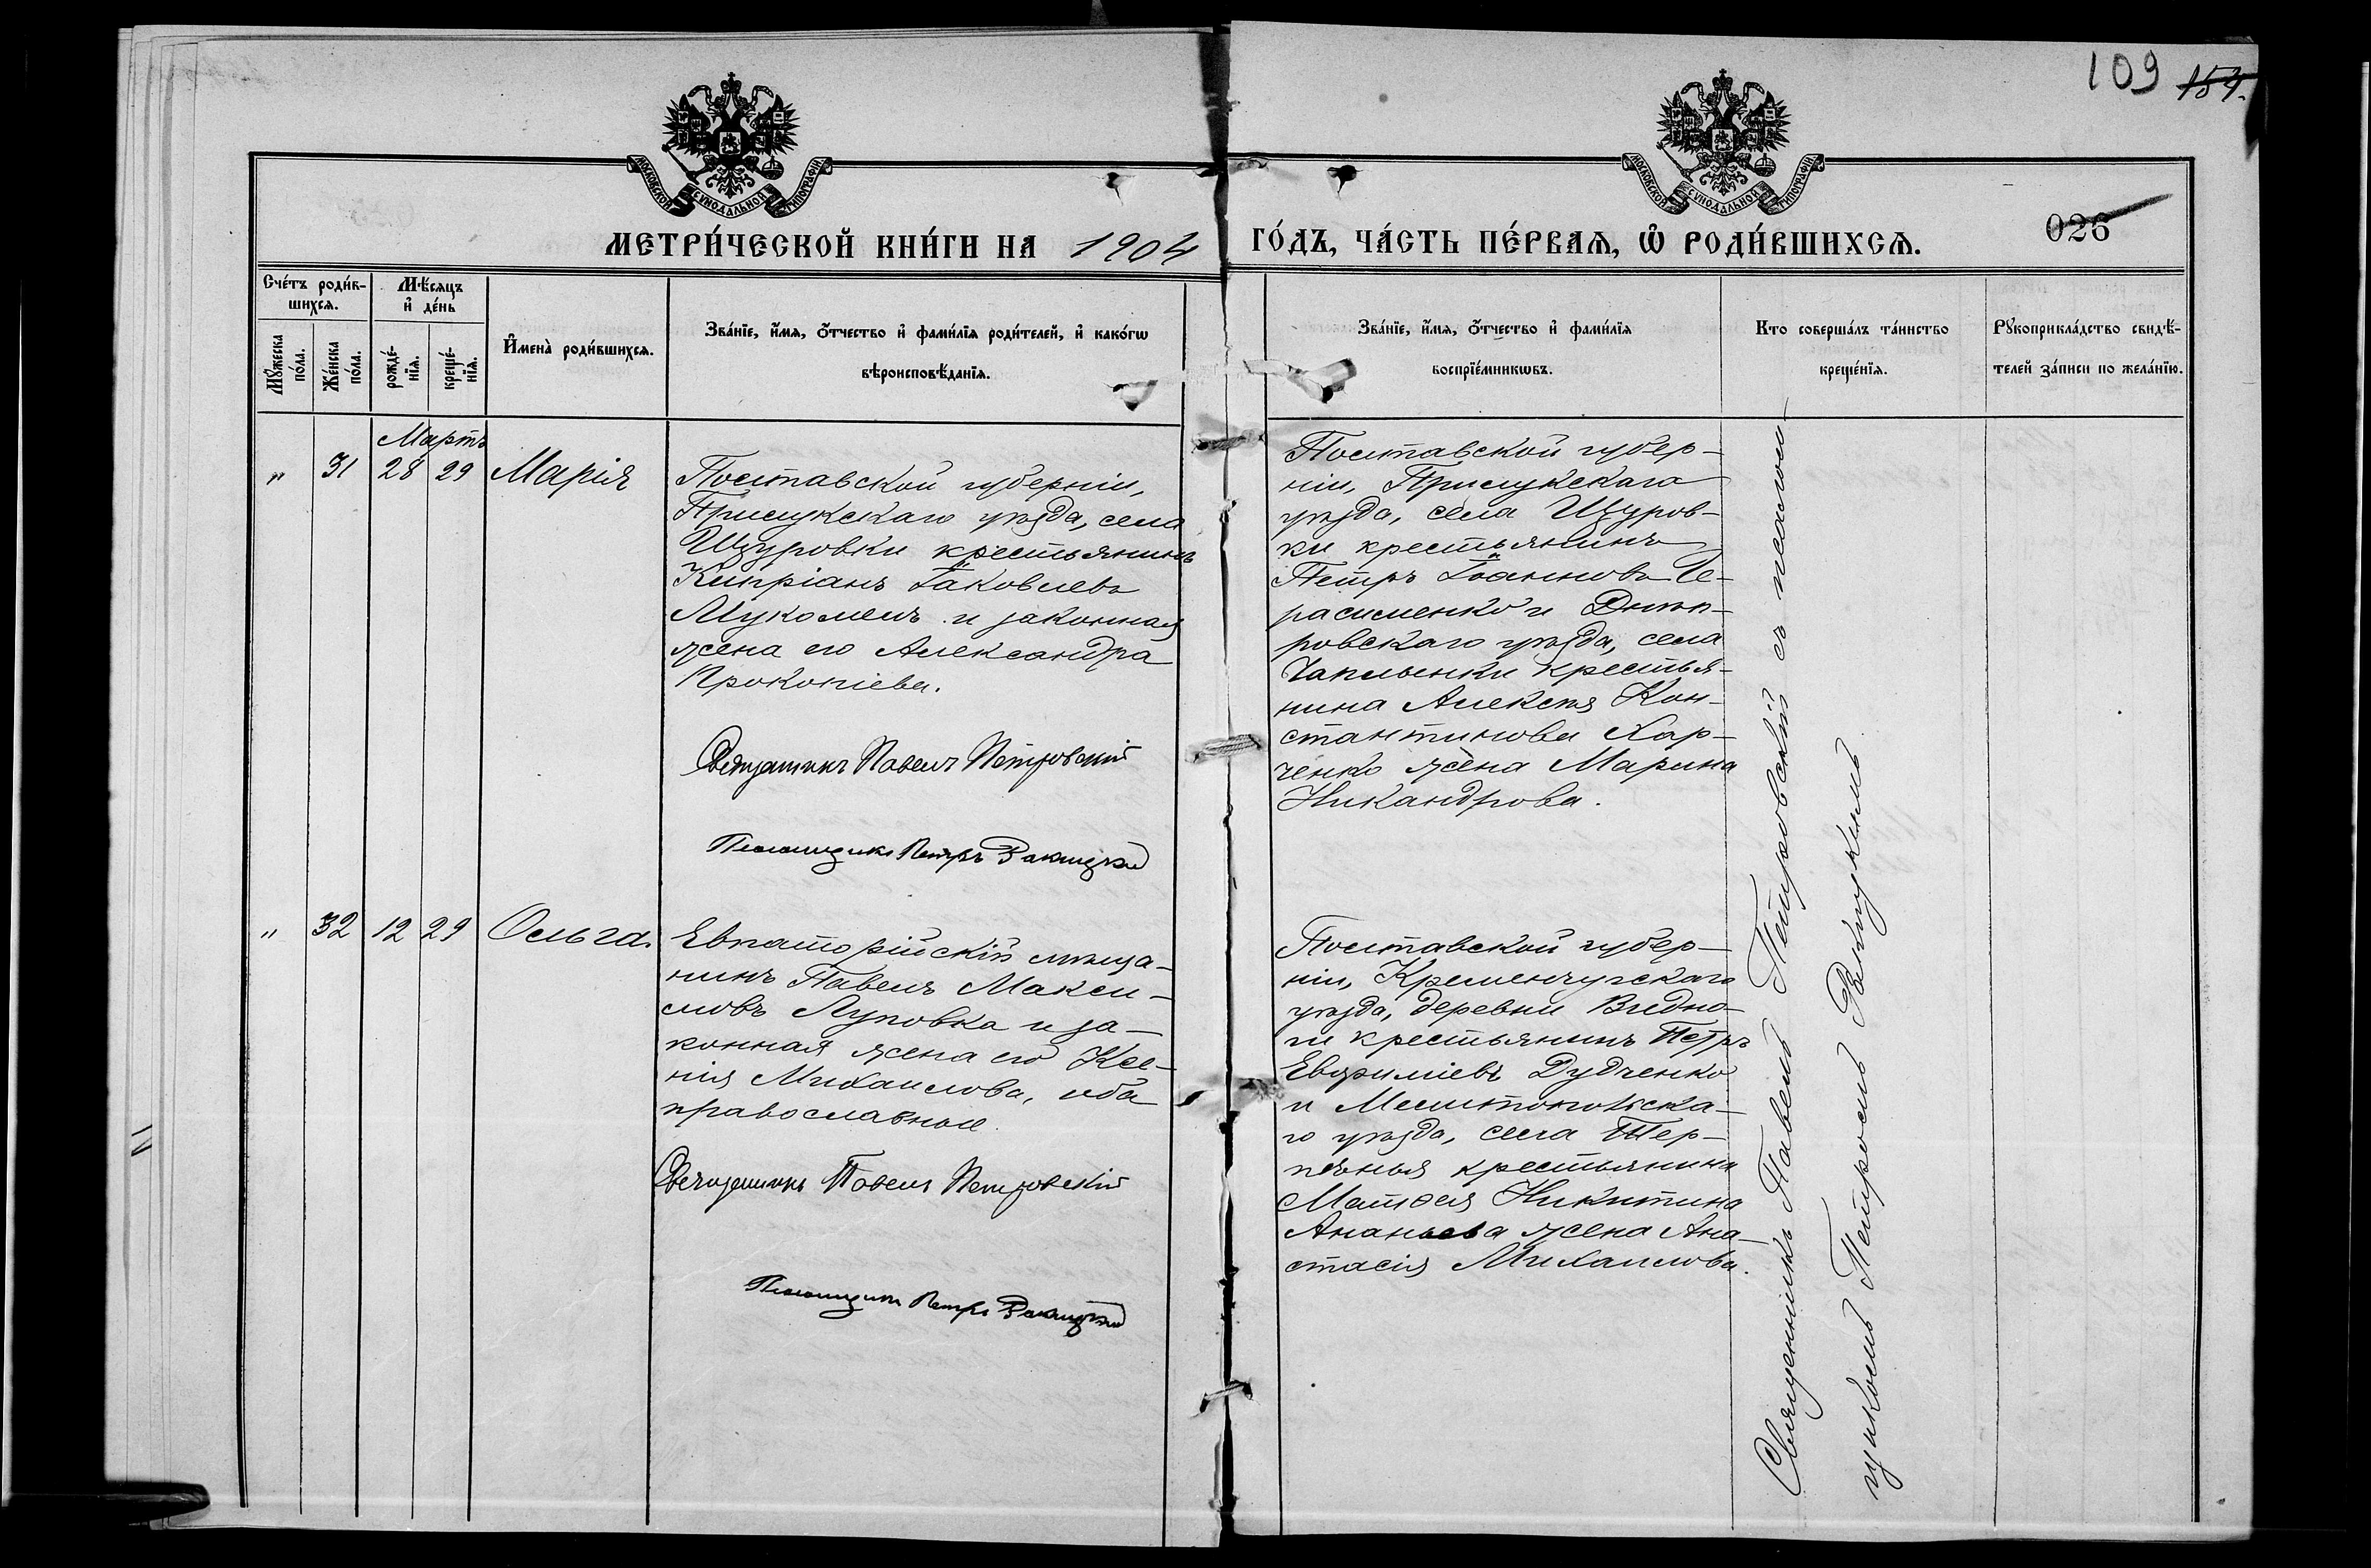 109 154.
МОСКОВСКОЙ СѴНОДАЛЬНОЙ ТИПОГРАФІИ
МОСКОВСКОЙ СѴНОДАЛЬНОЙ ТИПОГРАФІИ
026
МЕТРИ́ЧЕСКОЙ КНИ́ГИ НА 1904 ГО́ДЪ, ЧА́СТЬ ПЕ́РВАЯ, Ѽ РОДИ́ВШИХСЯ.
Сче́тъ роди́в-
шихся.
Мꙋжеска по́ла.
Же́нска по́ла.
Мѣ́сяцъ
и҆ де́нь
рожде́-
нїя.
креще́-
нїя.
И҆мена̀ роди́вшихся.
Зва́нїе, и҆́мя, ѻ҆́тчество и҆ фами́лїя роди́телей, и҆ како́гѡ
вѣроисповѣ́данїя.
Зва́нїе, и҆́мя, ѻ҆́тчество и҆ фами́лїя
воспрїе́мникѡвъ.
Кто соверша́лъ та́инство
креще́нїя.
Рꙋкоприкла́дство свидѣ́-
телей за́писи по жела́нїю.
Мартъ
" 31 28 29 Марія
Полтавской губерніи,
Прилукскаго уѣзда, села
Щуровки крестьянинъ
Кипріанъ Іаковлевъ
Мукомелъ и законная
жена его Александра
Прокопіева.
Священникъ Павелъ Петровскій
Псаломщикъ Петръ Ракицкій
Полтавской губер-
ніи, Прилукскаго
уѣзда, села Щуров-
ки крестьянинъ
Петръ Іоанновъ Ге-
расименко и Днѣп-
ровскаго уѣзда, села
Чаплынки крестья-
нина Алексѣя Кон-
стантинова Хар-
ченко жена Марина
Никандрова.
" 32 12 29 Ольга.
Евпаторійскій мѣща-
нинъ Павелъ Макси-
мовъ Луповка и за-
конная жена его Ксе-
нія Михаилова, оба
православные.
Священникъ Павелъ Петровскій
Псаломщикъ Петръ Ракицкій
Полтавской губер-
ніи, Кременчугскаго
уѣзда, деревни
крестьянинъ Петръ
Евфиміевъ Дудченко
и Мелитопольска-
го уѣзда, села Тер-
пѣнья крестьянина
Матѳея Никитина
Ананьева жена Ана-
стасія Михаилова.
Священникъ Павелъ Петровскій съ псалом-
щикомъ Петромъ Ракицкимъ